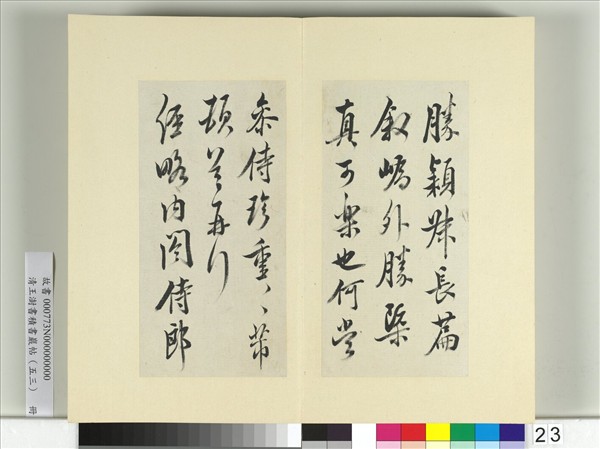 勝穎叔長篇
叙嶠外勝槩
真可樂也何當
叅侍珍重〻芾
頓首再拜
經略內閣侍郎
故書 000773N000000000
清王澍書積書巖帖(五三) 冊
23